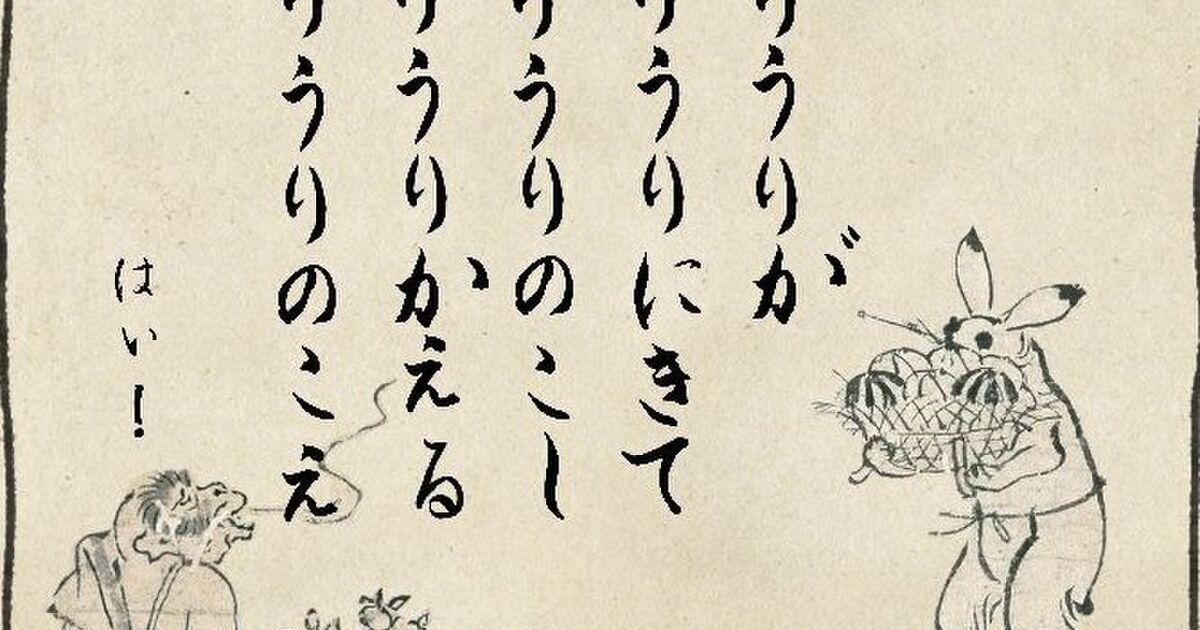 りうりが
りうりにきて
りうりのこし
りうりかえる
りうりのこえ
はい！